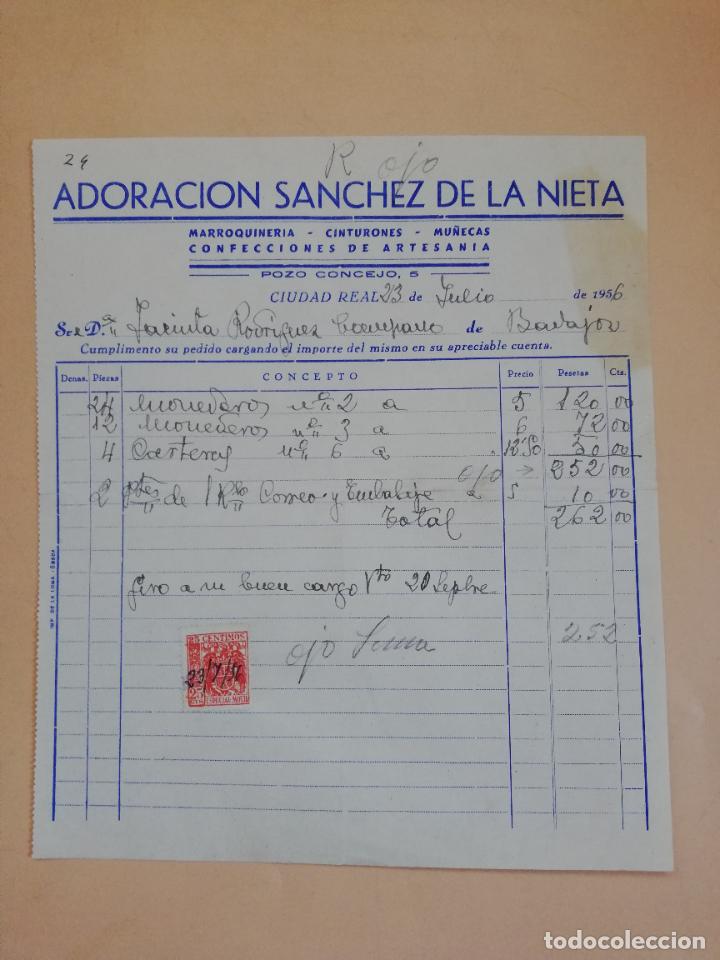 24 R ojo
ADORACION SANCHEZ DE LA NIETA
MARROQUINERIA - CINTURONES - MUÑECAS
CONFECCIONES DE ARTESANIA
POZO CONCEJO, 5
CIUDAD REAL 23 de Julio de 1956
Sr. D.ª Jacinta Rodriguez Campano de Badajoz
Cumplimento su pedido cargando el importe del mismo en su apreciable cuenta.
Denas. Piezas CONCEPTO Precio Pesetas Cts.
24 Monederos nº 2 a 5 120 00
12 Monederos nº 3 a 6 72 00
4 Carteras nº 6 a 12'50 50 00
ojo → 252 00
2 ptes de 1 Rbo Correo y Embalaje a 5 10 00
Total 262 00
Giro a su buen cargo Vto 20 Sepbre
ojo Suma 252
25 CENTIMOS
23/7/56
25 CTS
ESPECIAL MOVIL
IMP. DE LA LOMA - UBEDA
todocoleccion
todocoleccion.net